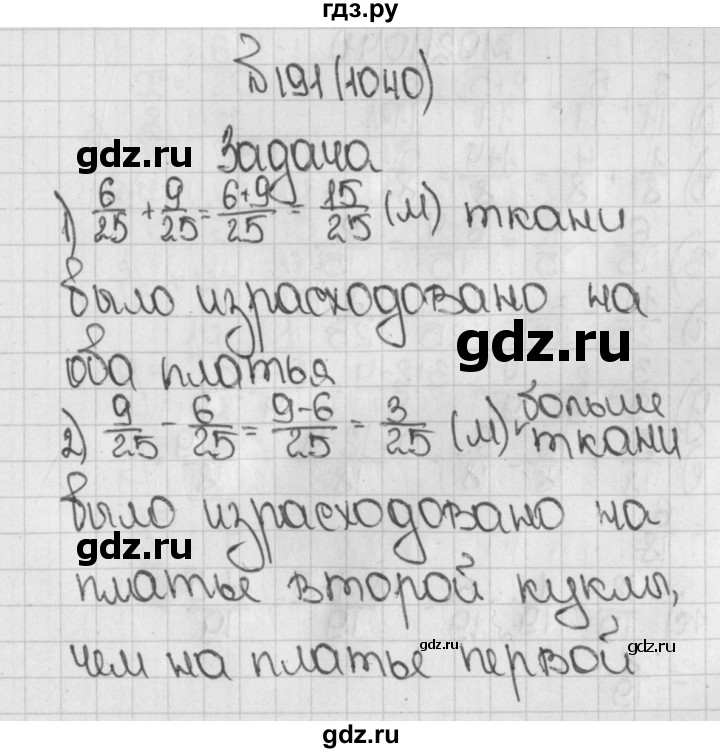 гдз.ру
№191(1040)
gdz.ru Задача
1) 6/25 + 9/25 = 6+9/25 = 15/25 (м) ткани
было израсходовано на
gdz.ru
оба платья
2) 9/25 - 6/25 = 9-6/25 = 3/25 (м) больше
ткани
было израсходовано на
gdz.ru
платье второй куклы,
gdz.ru gdz.ru
чем на платье первой
gdz.ru